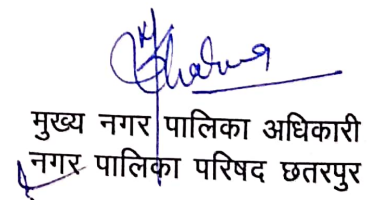 मुख्य नगर पालिका अधिकारी
नगर पालिका परिषद छतरपुर